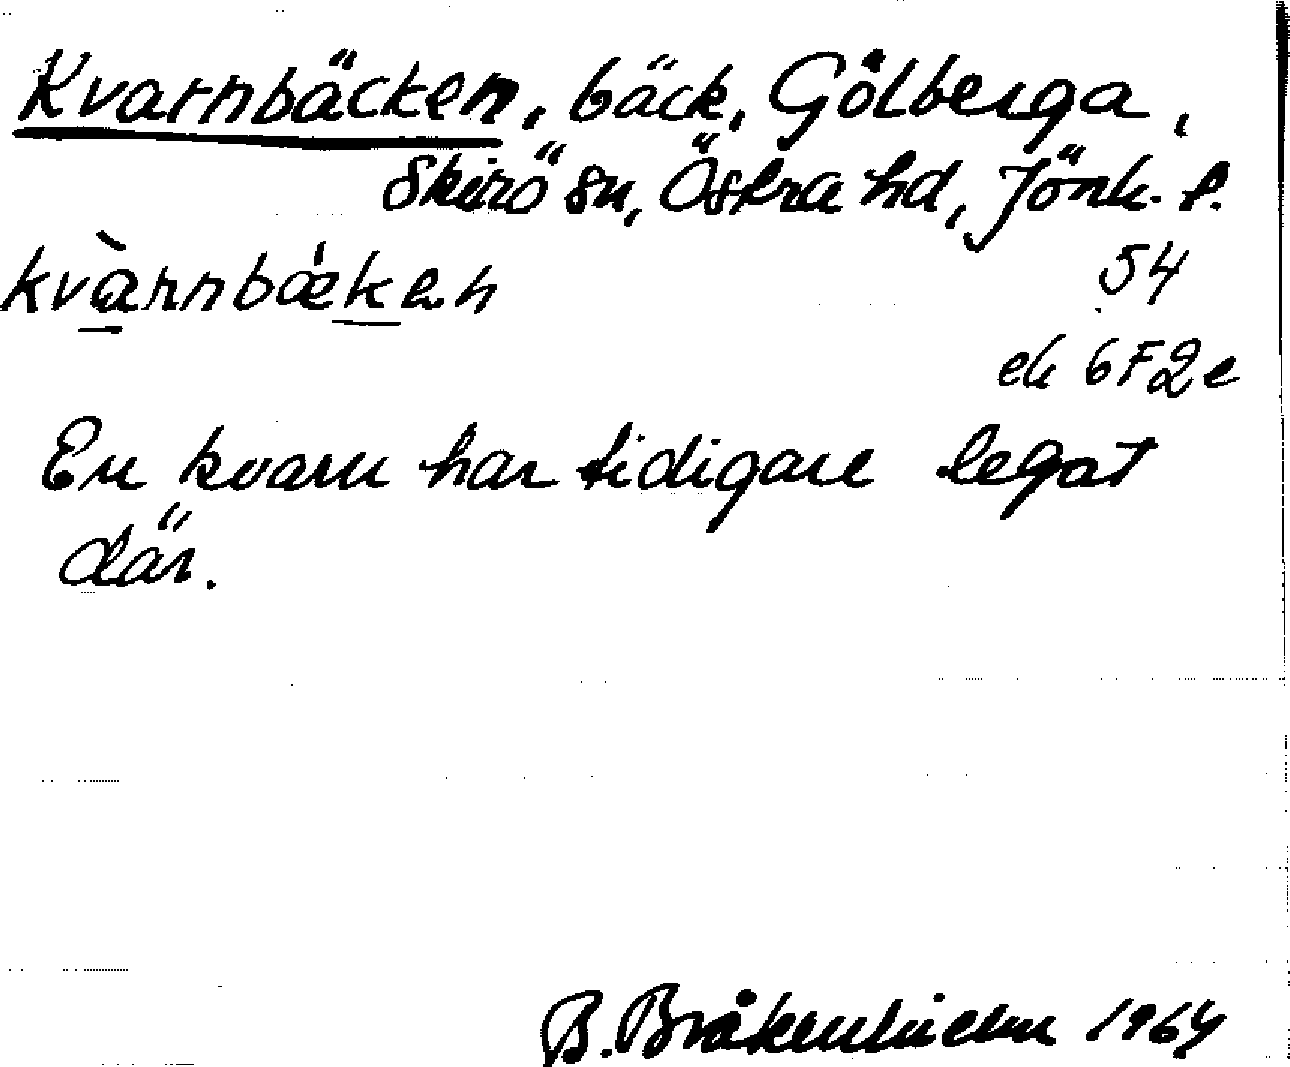 Kvarnbäcken, bäck, Gölberga,
Skirö sn, Östra hd, Jönk. l.
kvàrnbǽken 54
ek 6F2e
En kvarn har tidigare legat
där.
B. Bråkenhielm 1964